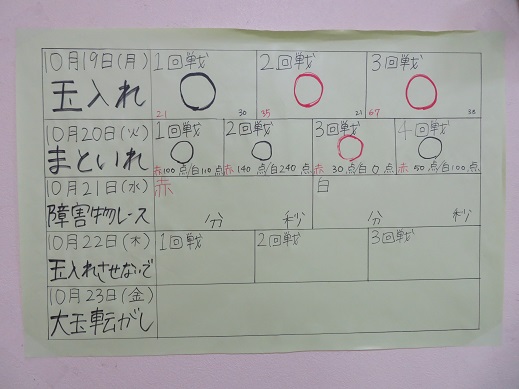 10月19日(月) 1回戦 2回戦 3回戦
玉入れ
21 30 35 21 67 38
10月20日(火) 1回戦 2回戦 3回戦 4回戦
まといれ 赤100点/白110点 赤140点/白240点 赤30点/白0点 赤50点/白100点
10月21日(水) 赤 白
障害物レース 分 秒 分 秒
10月22日(木) 1回戦 2回戦 3回戦
玉入れさせないで
10月23日(金)
大玉転がし